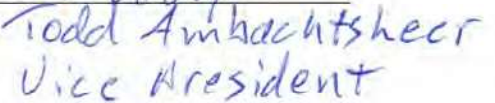 Todd Ambachtsheer
Vice President